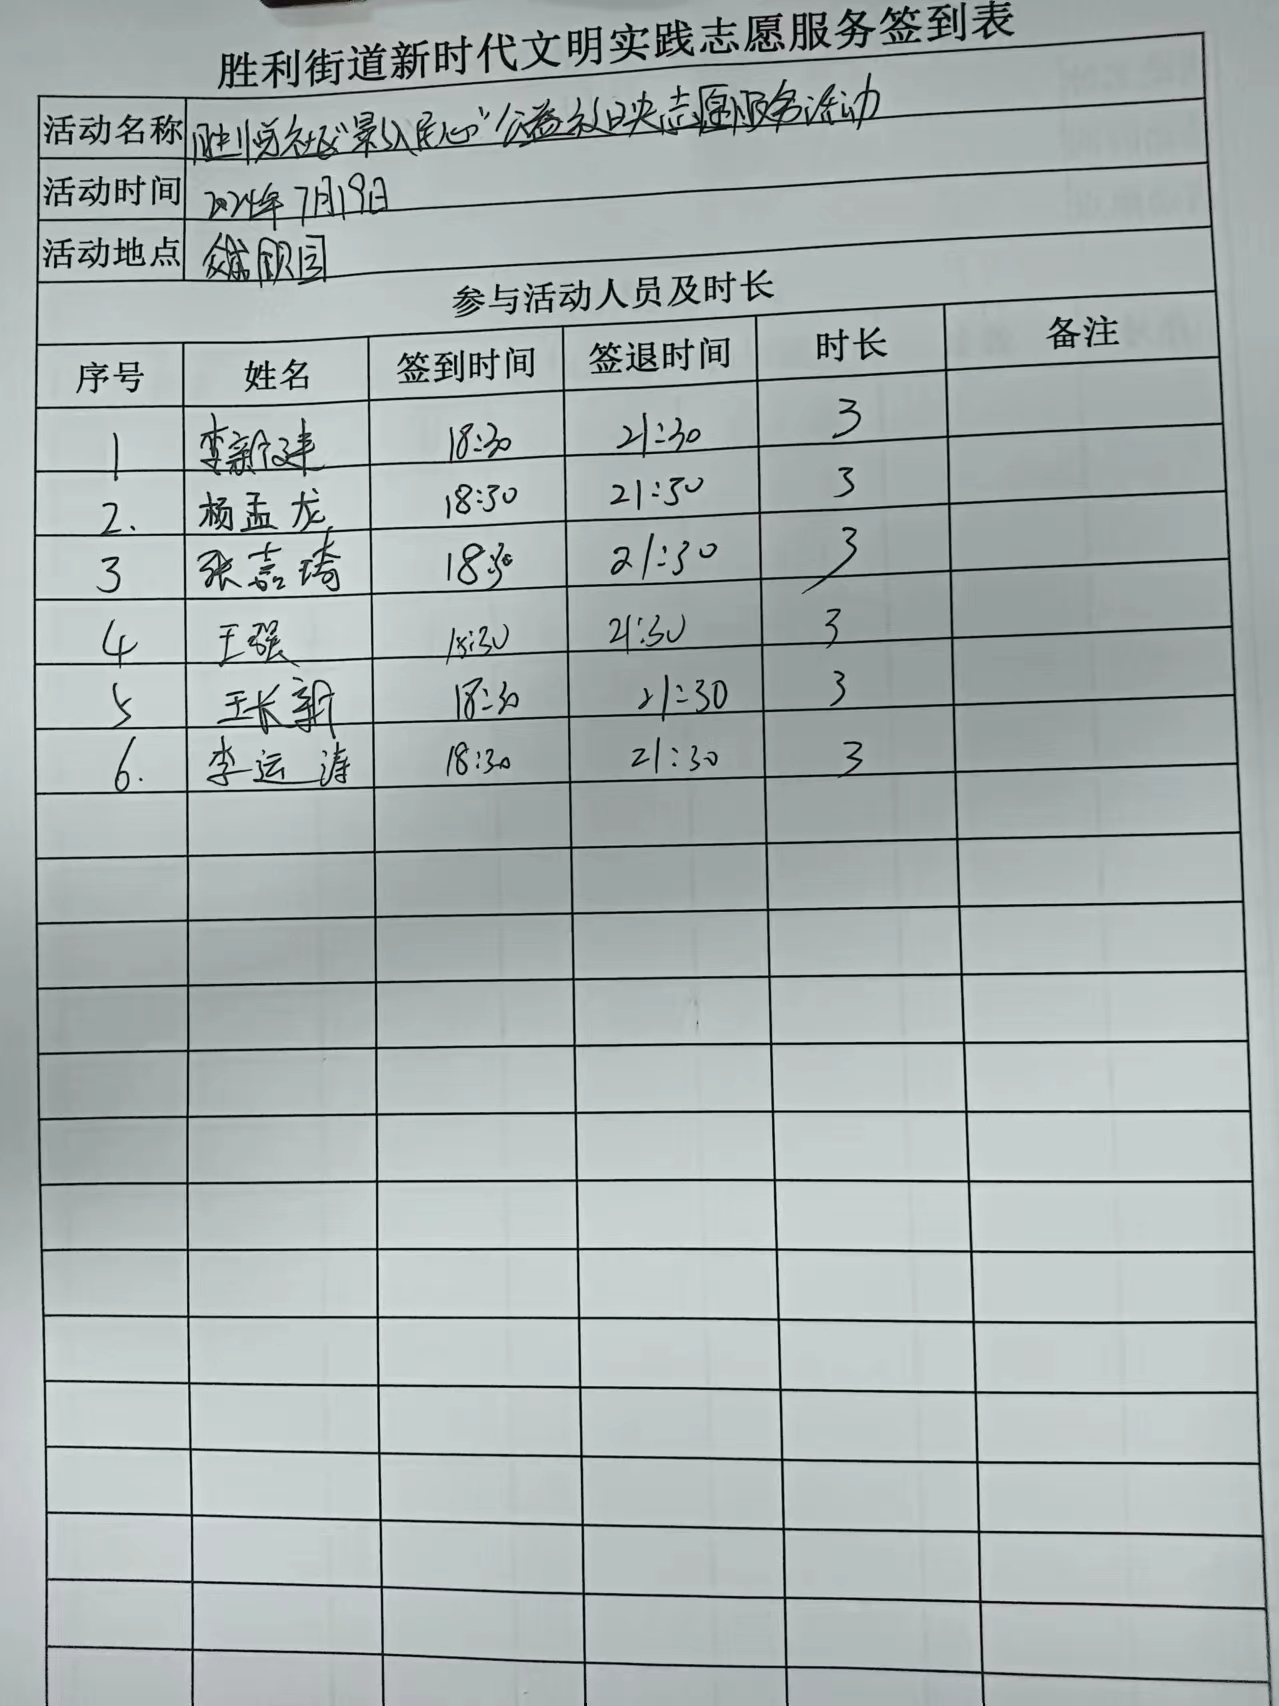 胜利街道新时代文明实践志愿服务签到表
活动名称 胜悦社区"影入民心"公益放映志愿服务活动
活动时间 2024年7月19日
活动地点 颐园
参与活动人员及时长
序号 姓名 签到时间 签退时间 时长 备注
1 李新建 18:30 21:30 3
2. 杨孟龙 18:30 21:30 3
3 张嘉琦 18:30 21:30 3
4 王强 18:30 21:30 3
5 王长新 18:30 21:30 3
6. 李运涛 18:30 21:30 3